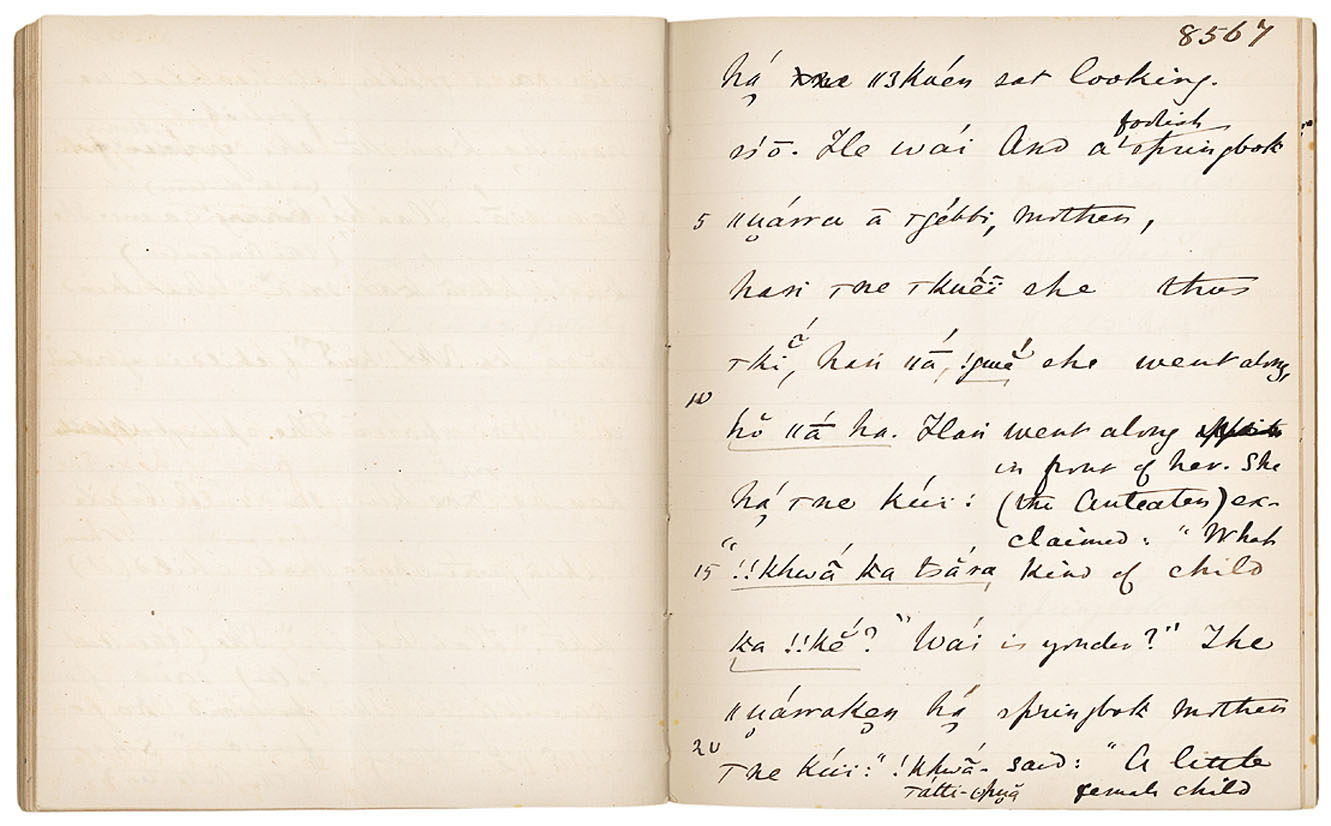 8567
há ɪne ǁ3kuén sat looking.
foolish
sʼō. He wái And a springbok
5 ǁṷárra ā ɪgébbi, mother,
haṅ ɪne ɪkuéĭĭ she thus
ɪkĭ, haṅ ǁā́, !gwắ she went along,
10
hŏ ǁā́ ha. Haṅ went along
in front of her. She
há ɪne kúi: (the Anteater) ex-
claimed: "What
15 "!!khwā́ ka tsára, kind of child
ka !!kĕ́? " Wái is yonder?" The
ǁṷárraken há springbok mother
20 ɪne kúi: "!khwā́- said: "A little
ɪátti- female child